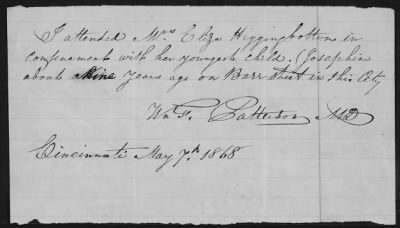 I attended Mrs Eliza Higginbottom in
confinement with her youngest child. (Josephine
about Nine years ago on Barr street in this City
Wm. F. Patterson MD
Cincinnati May 7th. 1868